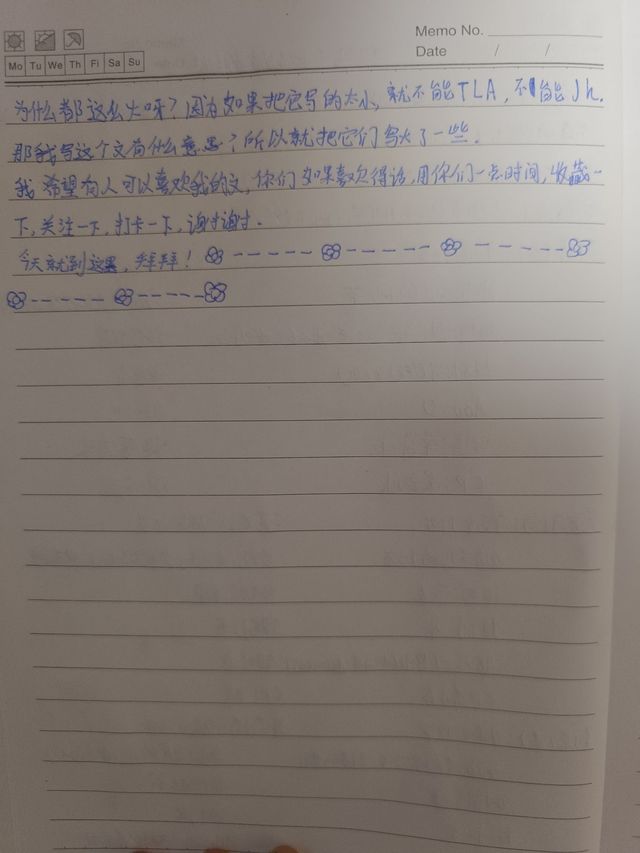 Memo No.
Mo Tu We Th Fi Sa Su
Date / /
为什么都这么大呀？因为如果把它写的太小，就不能TLA，不能Jh.
那我写这个文有什么意思？所以就把它们写大了一些.
我希望有人可以喜欢我的文，你们如果喜欢得话，用你们一点时间，收藏一
下，关注一下，打卡一下，谢谢谢谢.
今天就到这里，拜拜！